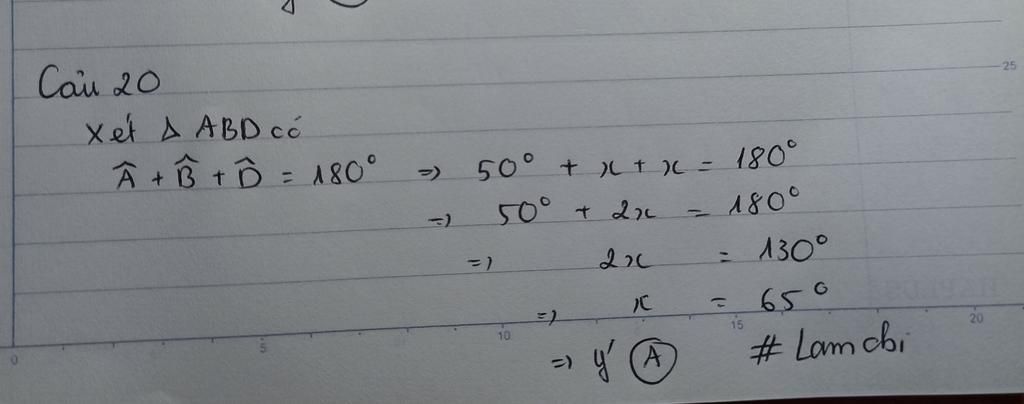 Câu 20
Xét Δ ABD có
Â + B̂ + D̂ = 180° => 50° + x + x = 180°
=> 50° + 2x = 180°
=> 2x = 130°
=> x = 65°
=> ý A # Lamchi
0 5 10 15 20 25